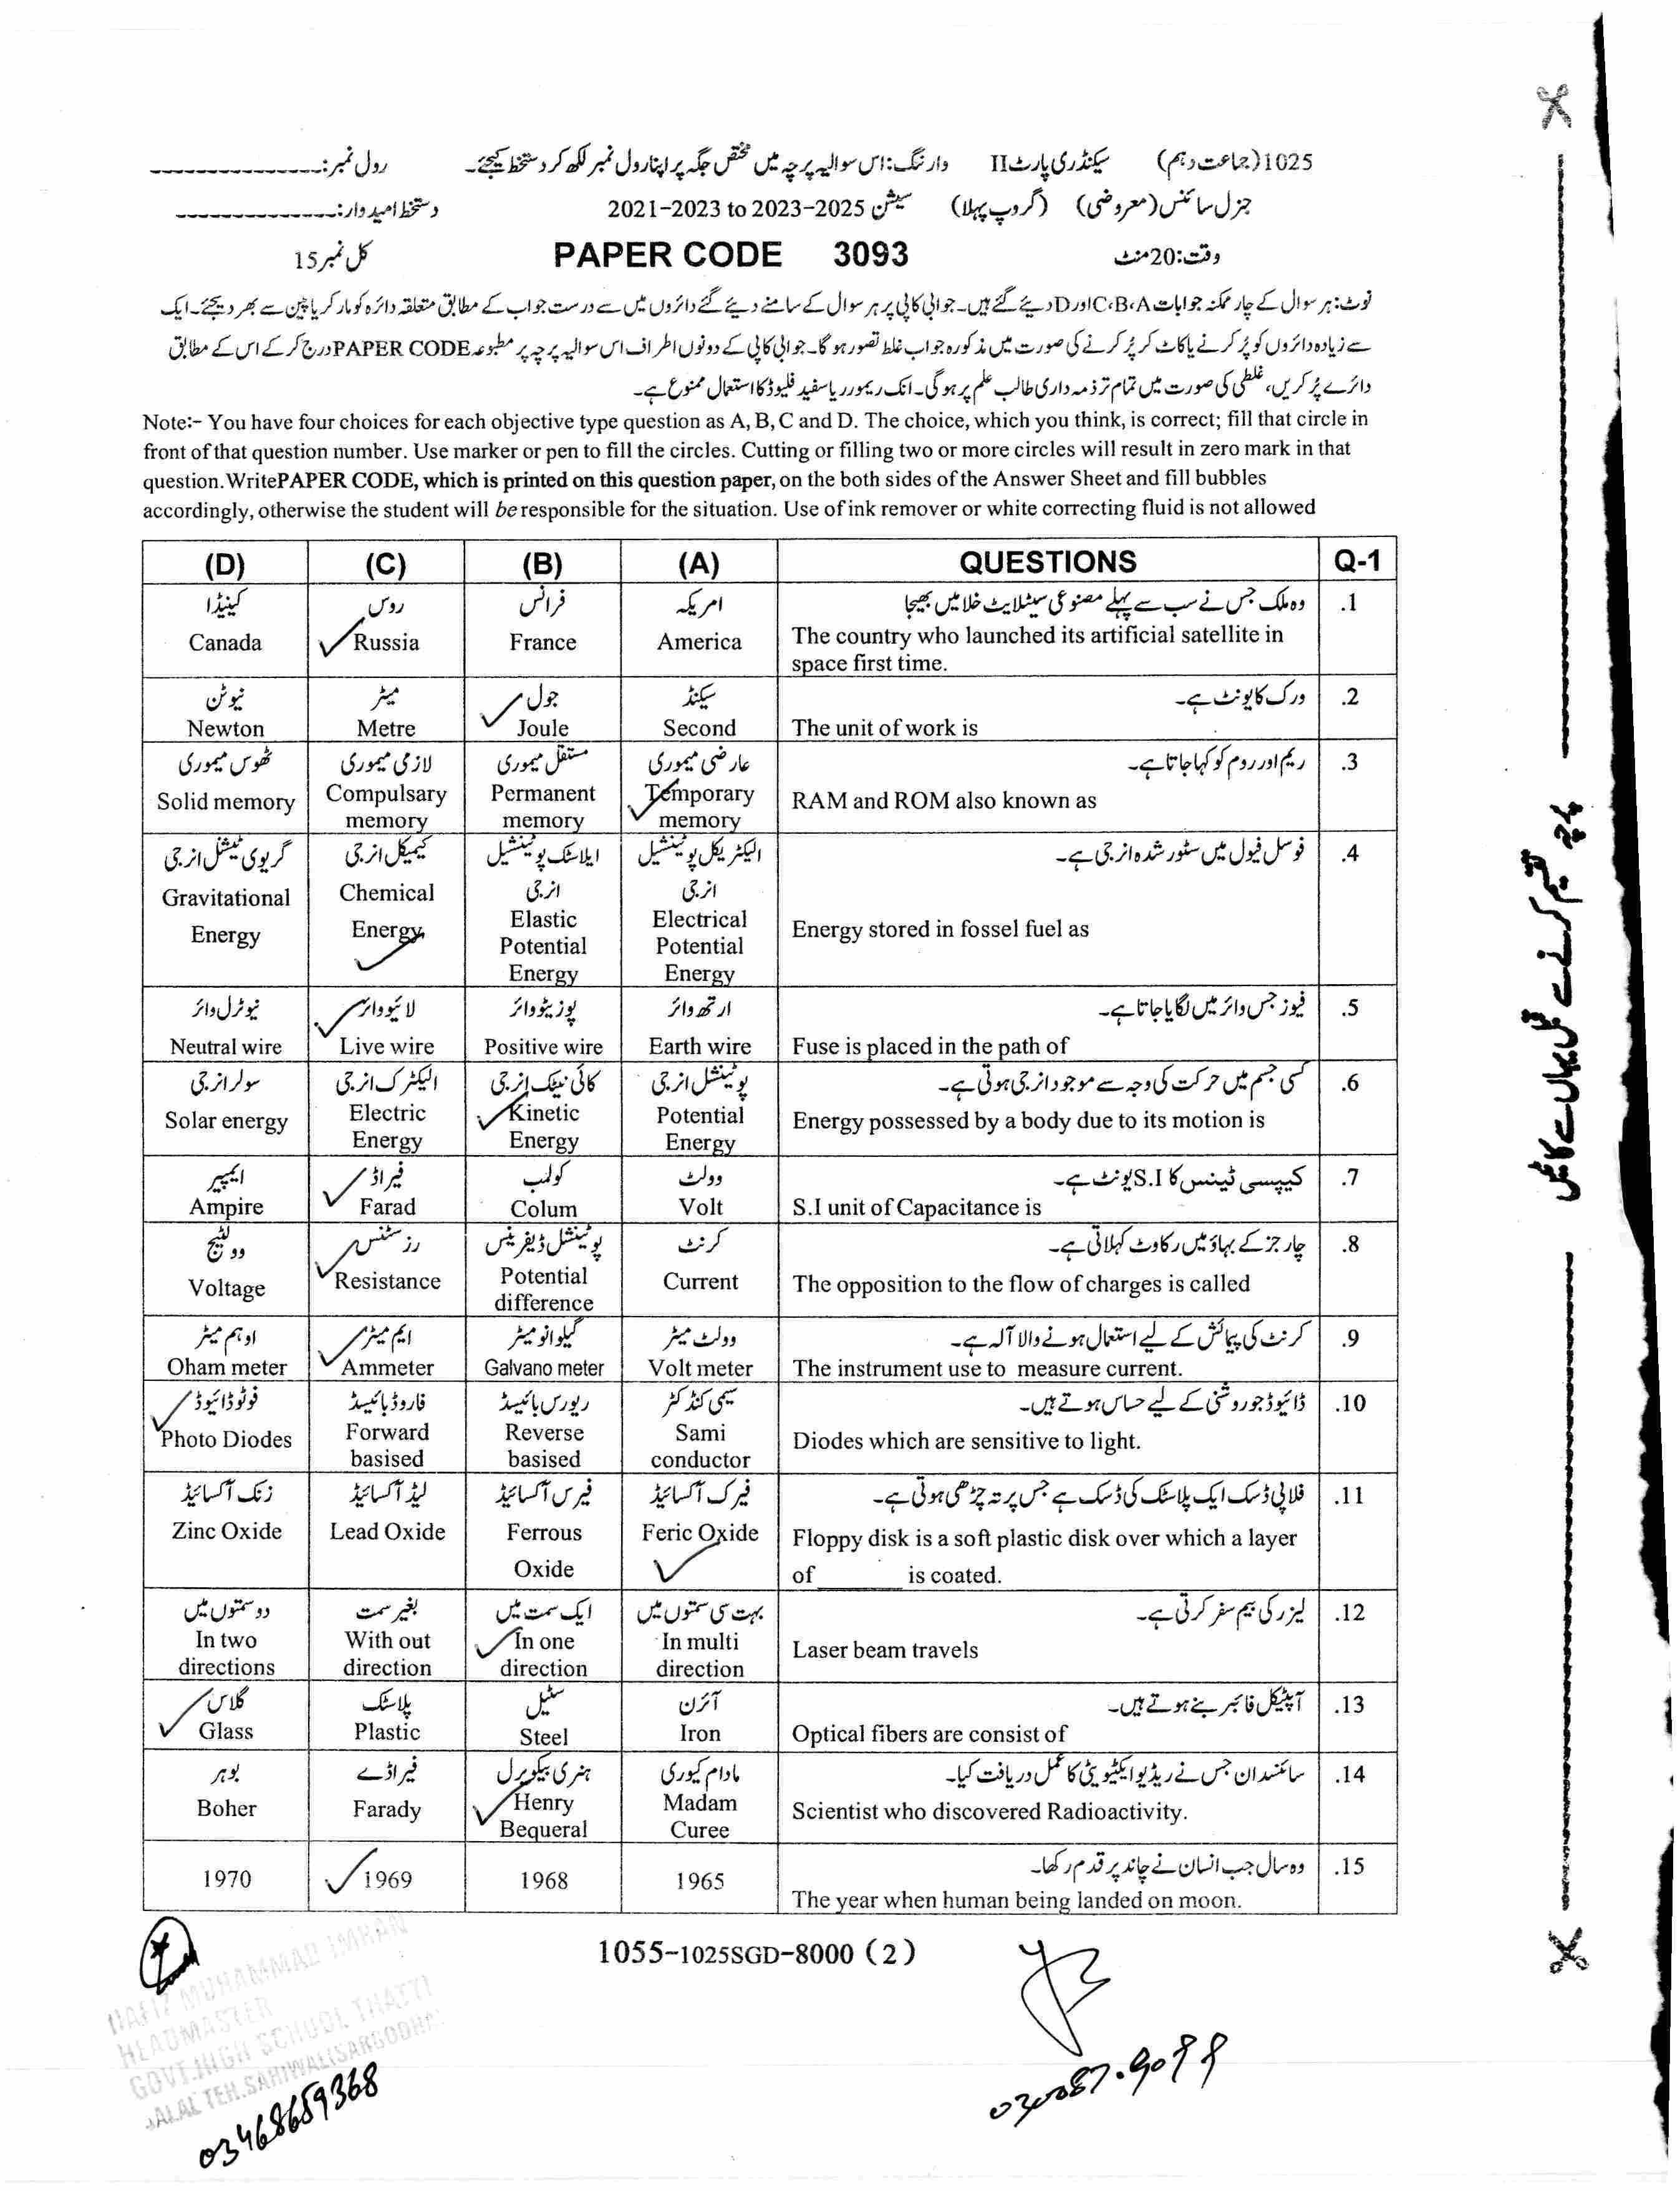 1025(جماعت دہم) سیکنڈری پارٹ II وارننگ:اس سوالیہ پرچہ میں مختص جگہ پر اپنا رول نمبر لکھ کر دستخط کیجئے۔ رول نمبر:
جنرل سائنس(معروضی) (گروپ پہلا) سیشن 2021-2023 to 2023-2025 دستخط امیدوار:
وقت:20منٹ PAPER CODE 3093 کل نمبر15
نوٹ:ہر سوال کے چار ممکنہ جوابات C،B،A اور D دیئے گئے ہیں۔جوابی کاپی پر ہر سوال کے سامنے دیئے گئے دائروں میں سے درست جواب کے مطابق متعلقہ دائرہ کو مارکر یا پین سے بھر دیجئے۔ایک
سے زیادہ دائروں کو پُر کرنے یا کاٹ کر پُر کرنے کی صورت میں مذکورہ جواب غلط تصور ہو گا۔جوابی کاپی کے دونوں اطراف اس سوالیہ پرچہ پر مطبوعہ PAPER CODE درج کر کے اس کے مطابق
دائرے پُر کریں،غلطی کی صورت میں تمام تر ذمہ داری طالب علم پر ہو گی۔انک ریمور ریا سفید فلیوڈ کا استعمال ممنوع ہے۔
Note:- You have four choices for each objective type question as A, B, C and D. The choice, which you think, is correct; fill that circle in
front of that question number. Use marker or pen to fill the circles. Cutting or filling two or more circles will result in zero mark in that
question.WritePAPER CODE, which is printed on this question paper, on the both sides of the Answer Sheet and fill bubbles
accordingly, otherwise the student will be responsible for the situation. Use of ink remover or white correcting fluid is not allowed
(D) (C) (B) (A) QUESTIONS Q-1
کینیڈا روس فرانس امریکہ وہ ملک جس نے سب سے پہلے مصنوعی سیٹلایٹ خلا میں بھیجا .1
Canada Russia France America The country who launched its artificial satellite in
space first time.
نیوٹن میٹر جول سیکنڈ ورک کا یونٹ ہے۔ .2
Newton Metre Joule Second The unit of work is
ٹھوس میموری لازمی میموری مستقل میموری عارضی میموری ریم اور روم کو کہا جاتا ہے۔ .3
Solid memory Compulsary Permanent Temporary RAM and ROM also known as
memory memory memory
گریوی ٹیشنل انرجی کیمیکل انرجی ایلاسٹک پوٹینشیل الیکٹریکل پوٹینشیل فوسل فیول میں سٹور شدہ انرجی ہے۔ .4
انرجی انرجی
Gravitational Chemical Elastic Electrical Energy stored in fossel fuel as
Energy Energy Potential Potential
Energy Energy
نیوٹرل وائر لائیو وائر پوزیٹو وائر ارتھ وائر فیوز جس وائر میں لگایا جاتا ہے۔ .5
Neutral wire Live wire Positive wire Earth wire Fuse is placed in the path of
سولر انرجی الیکٹرک انرجی کائی نیٹک انرجی پوٹینشل انرجی کسی جسم میں حرکت کی وجہ سے موجود انرجی ہوتی ہے۔ .6
Solar energy Electric Kinetic Potential Energy possessed by a body due to its motion is
Energy Energy Energy
ایمپیر فیراڈ کولمب وولٹ کیپسی ٹینس کا S.I یونٹ ہے۔ .7
Ampire Farad Colum Volt S.I unit of Capacitance is
وولٹیج رزسٹنس پوٹینشل ڈیفرینس کرنٹ چارجز کے بہاؤ میں رکاوٹ کہلاتی ہے۔ .8
Voltage Resistance Potential Current The opposition to the flow of charges is called
difference
اوہم میٹر ایم میٹر گیلوانومیٹر وولٹ میٹر کرنٹ کی پیمائش کے لیے استعمال ہونے والا آلہ ہے۔ .9
Oham meter Ammeter Galvano meter Volt meter The instrument use to measure current.
فوٹو ڈائیوڈ فارورڈ بائیسڈ ریورس بائیسڈ سیمی کنڈکٹر ڈائیوڈ جو روشنی کے لیے حساس ہوتے ہیں۔ .10
Photo Diodes Forward Reverse Sami Diodes which are sensitive to light.
basised basised conductor
زنک آکسائیڈ لیڈ آکسائیڈ فیرس آکسائیڈ فیرک آکسائیڈ فلاپی ڈسک ایک پلاسٹک کی ڈسک ہے جس پر تہ چڑھی ہوتی ہے۔ .11
Zinc Oxide Lead Oxide Ferrous Feric Oxide Floppy disk is a soft plastic disk over which a layer
Oxide of ______ is coated.
دو سمتوں میں بغیر سمت ایک سمت میں بہت سی سمتوں میں لیزر کی بیم سفر کرتی ہے۔ .12
In two With out In one In multi Laser beam travels
directions direction direction direction
گلاس پلاسٹک سٹیل آئرن آپٹیکل فائبر بنے ہوتے ہیں۔ .13
Glass Plastic Steel Iron Optical fibers are consist of
بوہر فیراڈے ہنری بیکویرل مادام کیوری سائنسدان جس نے ریڈیو ایکٹیویٹی کا عمل دریافت کیا۔ .14
Boher Farady Henry Madam Scientist who discovered Radioactivity.
Bequeral Curee
1970 1969 1968 1965 وہ سال جب انسان نے چاند پر قدم رکھا۔ .15
The year when human being landed on moon.
1055-1025SGD-8000 (2)
HAFIZ MUHAMMAD IMRAN
HEADMASTER
GOVT.HIGH SCHOOL THATTI
JALAL TEH.SAHIWAL(SARGODHA)
03468659368
پرچہ تقسیم کرنے سے قبل یہاں سے کاٹیں